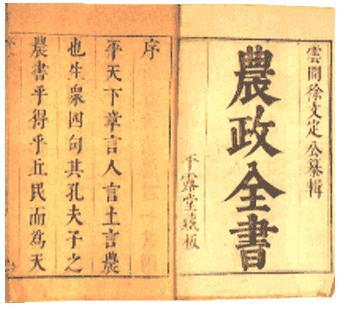 雲間徐文定公纂輯
農政全書
平露堂藏板
序
平天下章言人言土言農
也生衆四句其孔夫子之
農書乎得乎丘民而為天